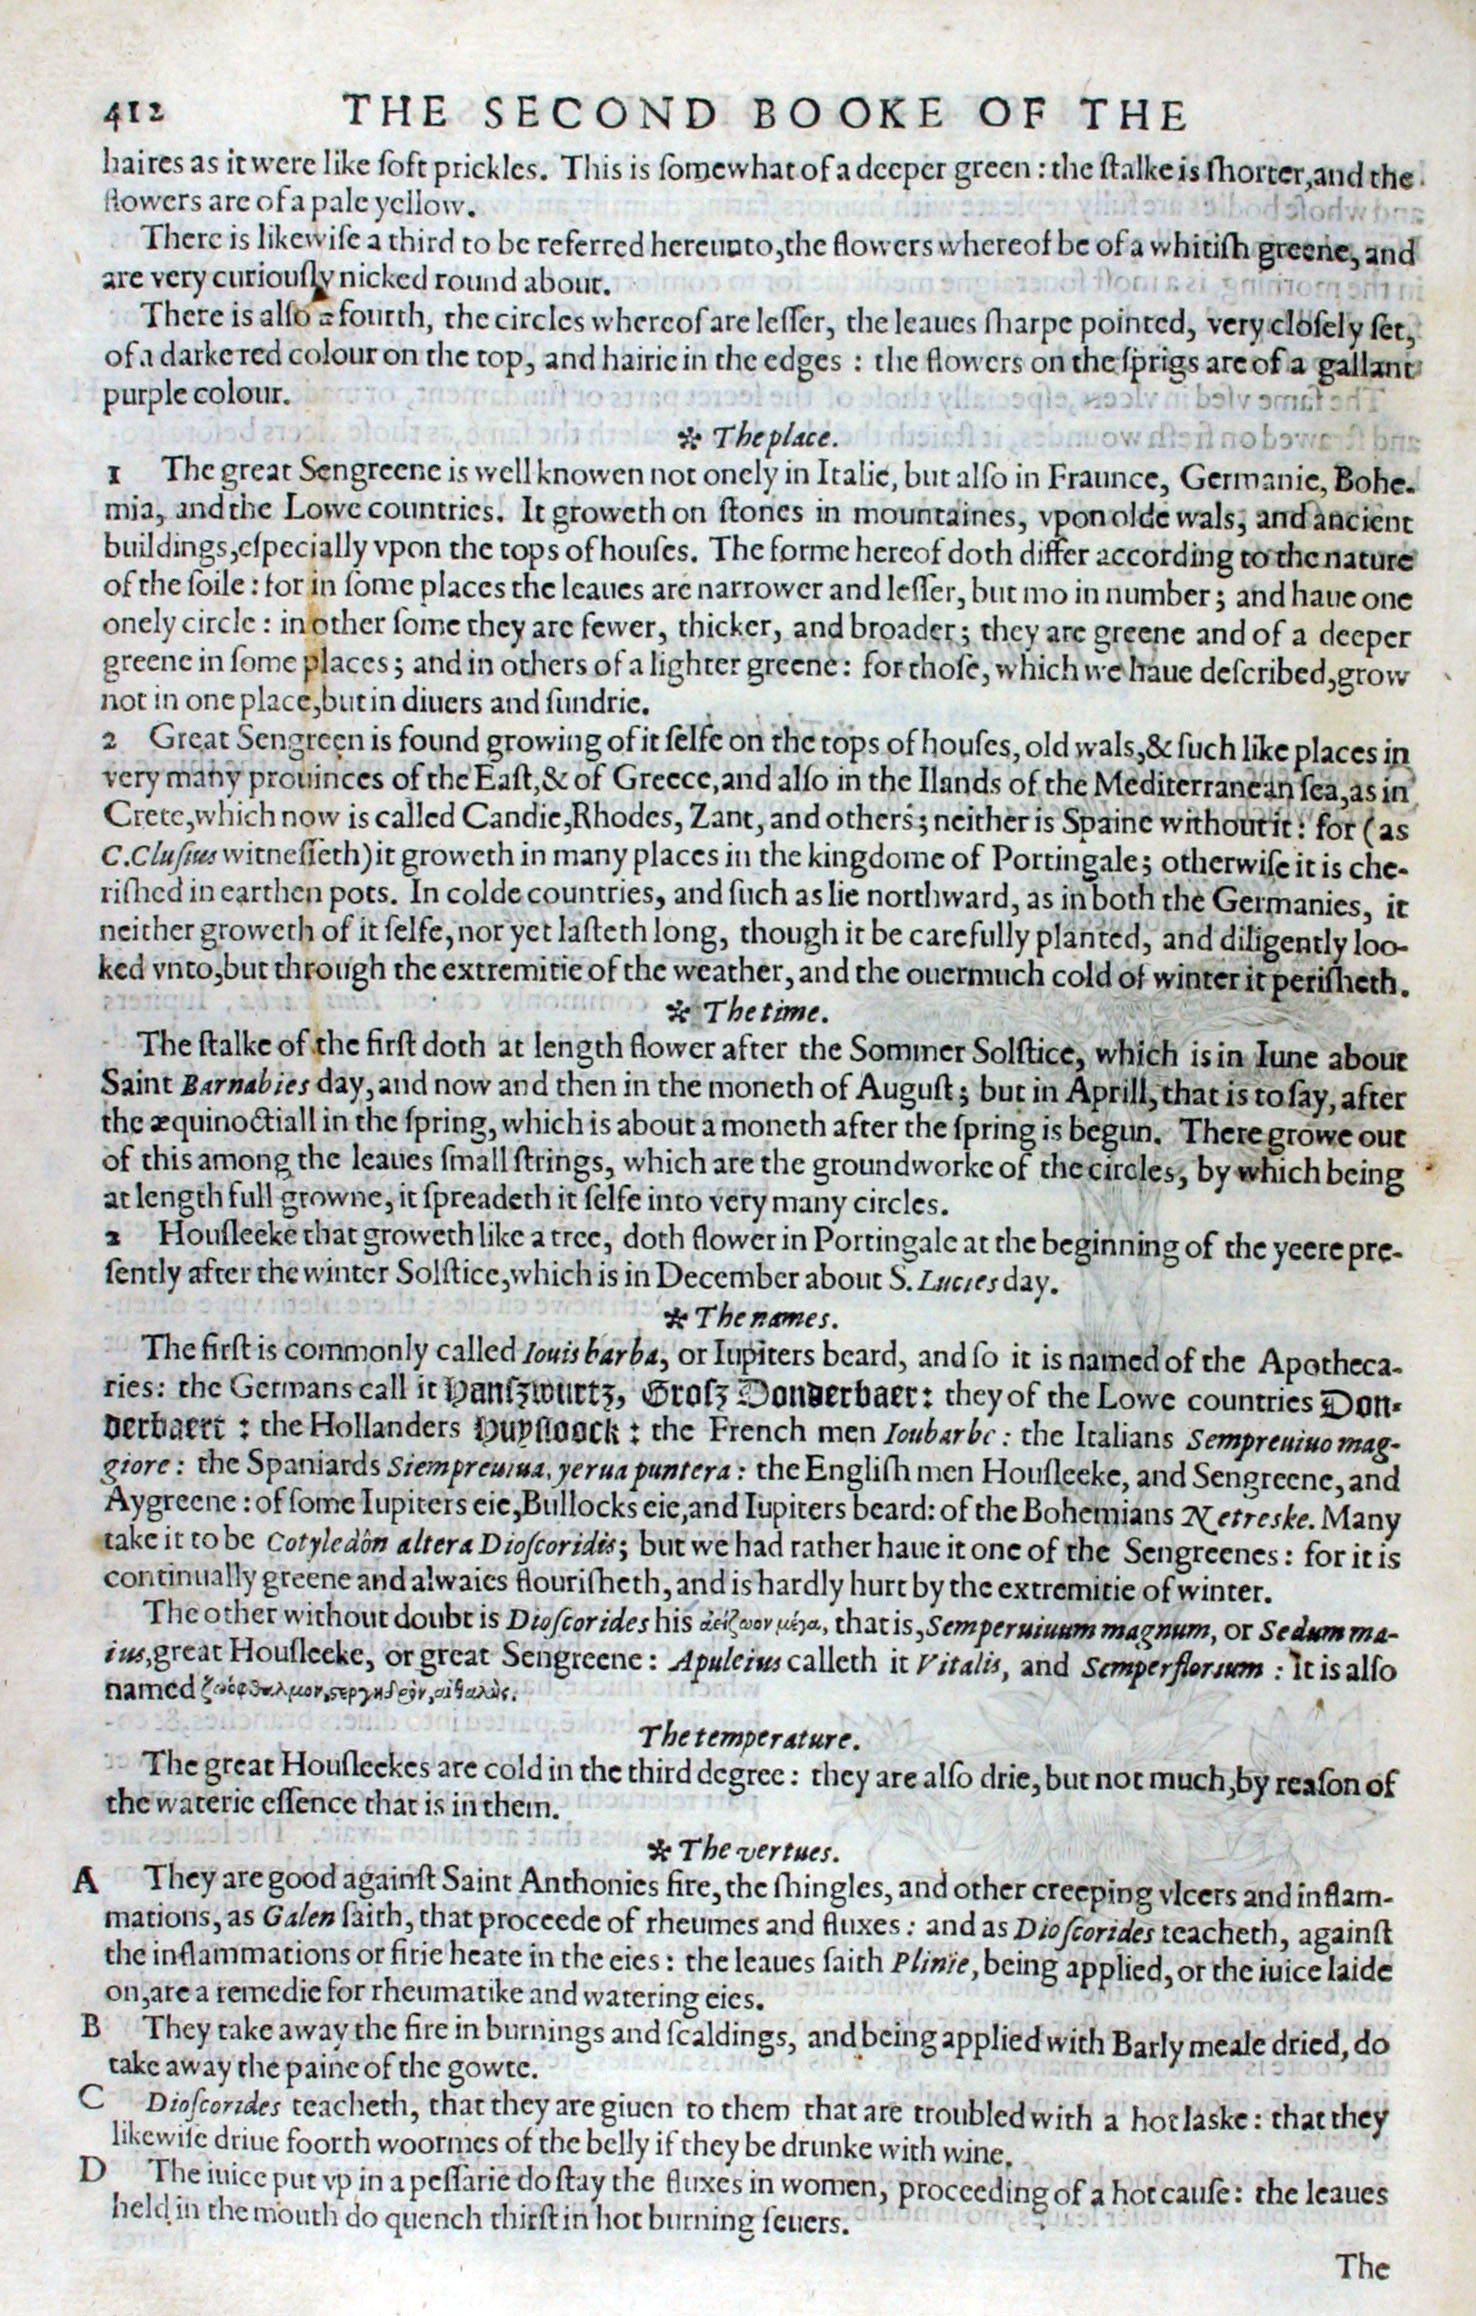 412 THE SECOND BOOKE OF THE
haires as it were like ſoft prickles. This is ſomewhat of a deeper green : the ſtalke is ſhorter, and the
flowers are of a pale yellow.
There is likewiſe a third to be referred hereunto, the flowers whereof be of a whitiſh greene, and
are very curiouſly nicked round about.
There is alſo a fourth, the circles whereof are leſſer, the leaues ſharpe pointed, very cloſely ſet,
of a darke red colour on the top, and hairie in the edges : the flowers on the ſprigs are of a gallant
purple colour.
✻ The place.
1 The great Sengreene is well knowen not onely in Italie, but alſo in Fraunce, Germanie, Bohe-
mia, and the Lowe countries. It groweth on ſtones in mountaines, vpon olde wals, and ancient
buildings, eſpecially vpon the tops of houſes. The forme hereof doth differ according to the nature
of the ſoile : for in ſome places the leaues are narrower and leſſer, but mo in number ; and haue one
onely circle : in other ſome they are fewer, thicker, and broader ; they are greene and of a deeper
greene in ſome places ; and in others of a lighter greene : for thoſe, which we haue deſcribed, grow
not in one place, but in diuers and ſundrie.
2 Great Sengreen is found growing of it ſelfe on the tops of houſes, old wals, & ſuch like places in
very many prouinces of the Eaſt, & of Greece, and alſo in the Ilands of the Mediterranean ſea, as in
Crete, which now is called Candie, Rhodes, Zant, and others ; neither is Spaine without it : for (as
C. Cluſius witneſſeth) it groweth in many places in the kingdome of Portingale ; otherwiſe it is che-
riſhed in earthen pots. In colde countries, and ſuch as lie northward, as in both the Germanies, it
neither groweth of it ſelfe, nor yet laſteth long, though it be carefully planted, and diligently loo-
ked vnto, but through the extremitie of the weather, and the ouermuch cold of winter it periſheth.
✻ The time.
The ſtalke of the firſt doth at length flower after the Sommer Solſtice, which is in Iune about
Saint Barnabies day, and now and then in the moneth of Auguſt ; but in Aprill, that is to ſay, after
the æquinoctiall in the ſpring, which is about a moneth after the ſpring is begun. There growe out
of this among the leaues ſmall ſtrings, which are the groundworke of the circles, by which being
at length full growne, it ſpreadeth it ſelfe into very many circles.
2 Houſleeke that groweth like a tree, doth flower in Portingale at the beginning of the yeere pre-
ſently after the winter Solſtice, which is in December about S. Lucies day.
✻ The names.
The firſt is commonly called Iouis barba, or Iupiters beard, and ſo it is named of the Apotheca-
ries : the Germans call it Hanſzwurtz, Groſz Donderbaer : they of the Lowe countries Don-
derbaert : the Hollanders Huyſloock : the French men Ioubarbe : the Italians Sempreuiuo mag-
giore : the Spaniards Siempreuiua, yerua puntera : the Engliſh men Houſleeke, and Sengreene, and
Aygreene : of ſome Iupiters eie, Bullocks eie, and Iupiters beard : of the Bohemians Netreske. Many
take it to be Cotyledôn altera Dioſcoridis ; but we had rather haue it one of the Sengreenes : for it is
continually greene and alwaies flouriſheth, and is hardly hurt by the extremitie of winter.
The other without doubt is Dioſcorides his ἀείζωον μέγα, that is, Semperuiuum magnum, or Sedum ma-
ius, great Houſleeke, or great Sengreene : Apuleius calleth it Vitalis, and Semperflorium : It is alſo
named
The temperature.
The great Houſleekes are cold in the third degree : they are alſo drie, but not much, by reaſon of
the waterie eſſence that is in them.
✻ The vertues.
A They are good againſt Saint Anthonies fire, the ſhingles, and other creeping vlcers and inflam-
mations, as Galen ſaith, that proceede of rheumes and fluxes : and as Dioſcorides teacheth, againſt
the inflammations or firie heate in the eies : the leaues ſaith Plinie, being applied, or the iuice laide
on, are a remedie for rheumatike and watering eies.
B They take away the fire in burnings and ſcaldings, and being applied with Barly meale dried, do
take away the paine of the gowte.
C Dioſcorides teacheth, that they are giuen to them that are troubled with a hot laske : that they
likewiſe driue foorth woormes of the belly if they be drunke with wine.
D The iuice put vp in a peſſarie do ſtay the fluxes in women, proceeding of a hot cauſe : the leaues
held in the mouth do quench thirſt in hot burning feuers.
The